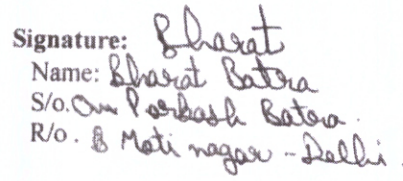 Signature: Bharat
Name: Bharat Batra
S/o. Om Parkash Batra.
R/o. 8 Moti nagar - Delhi.